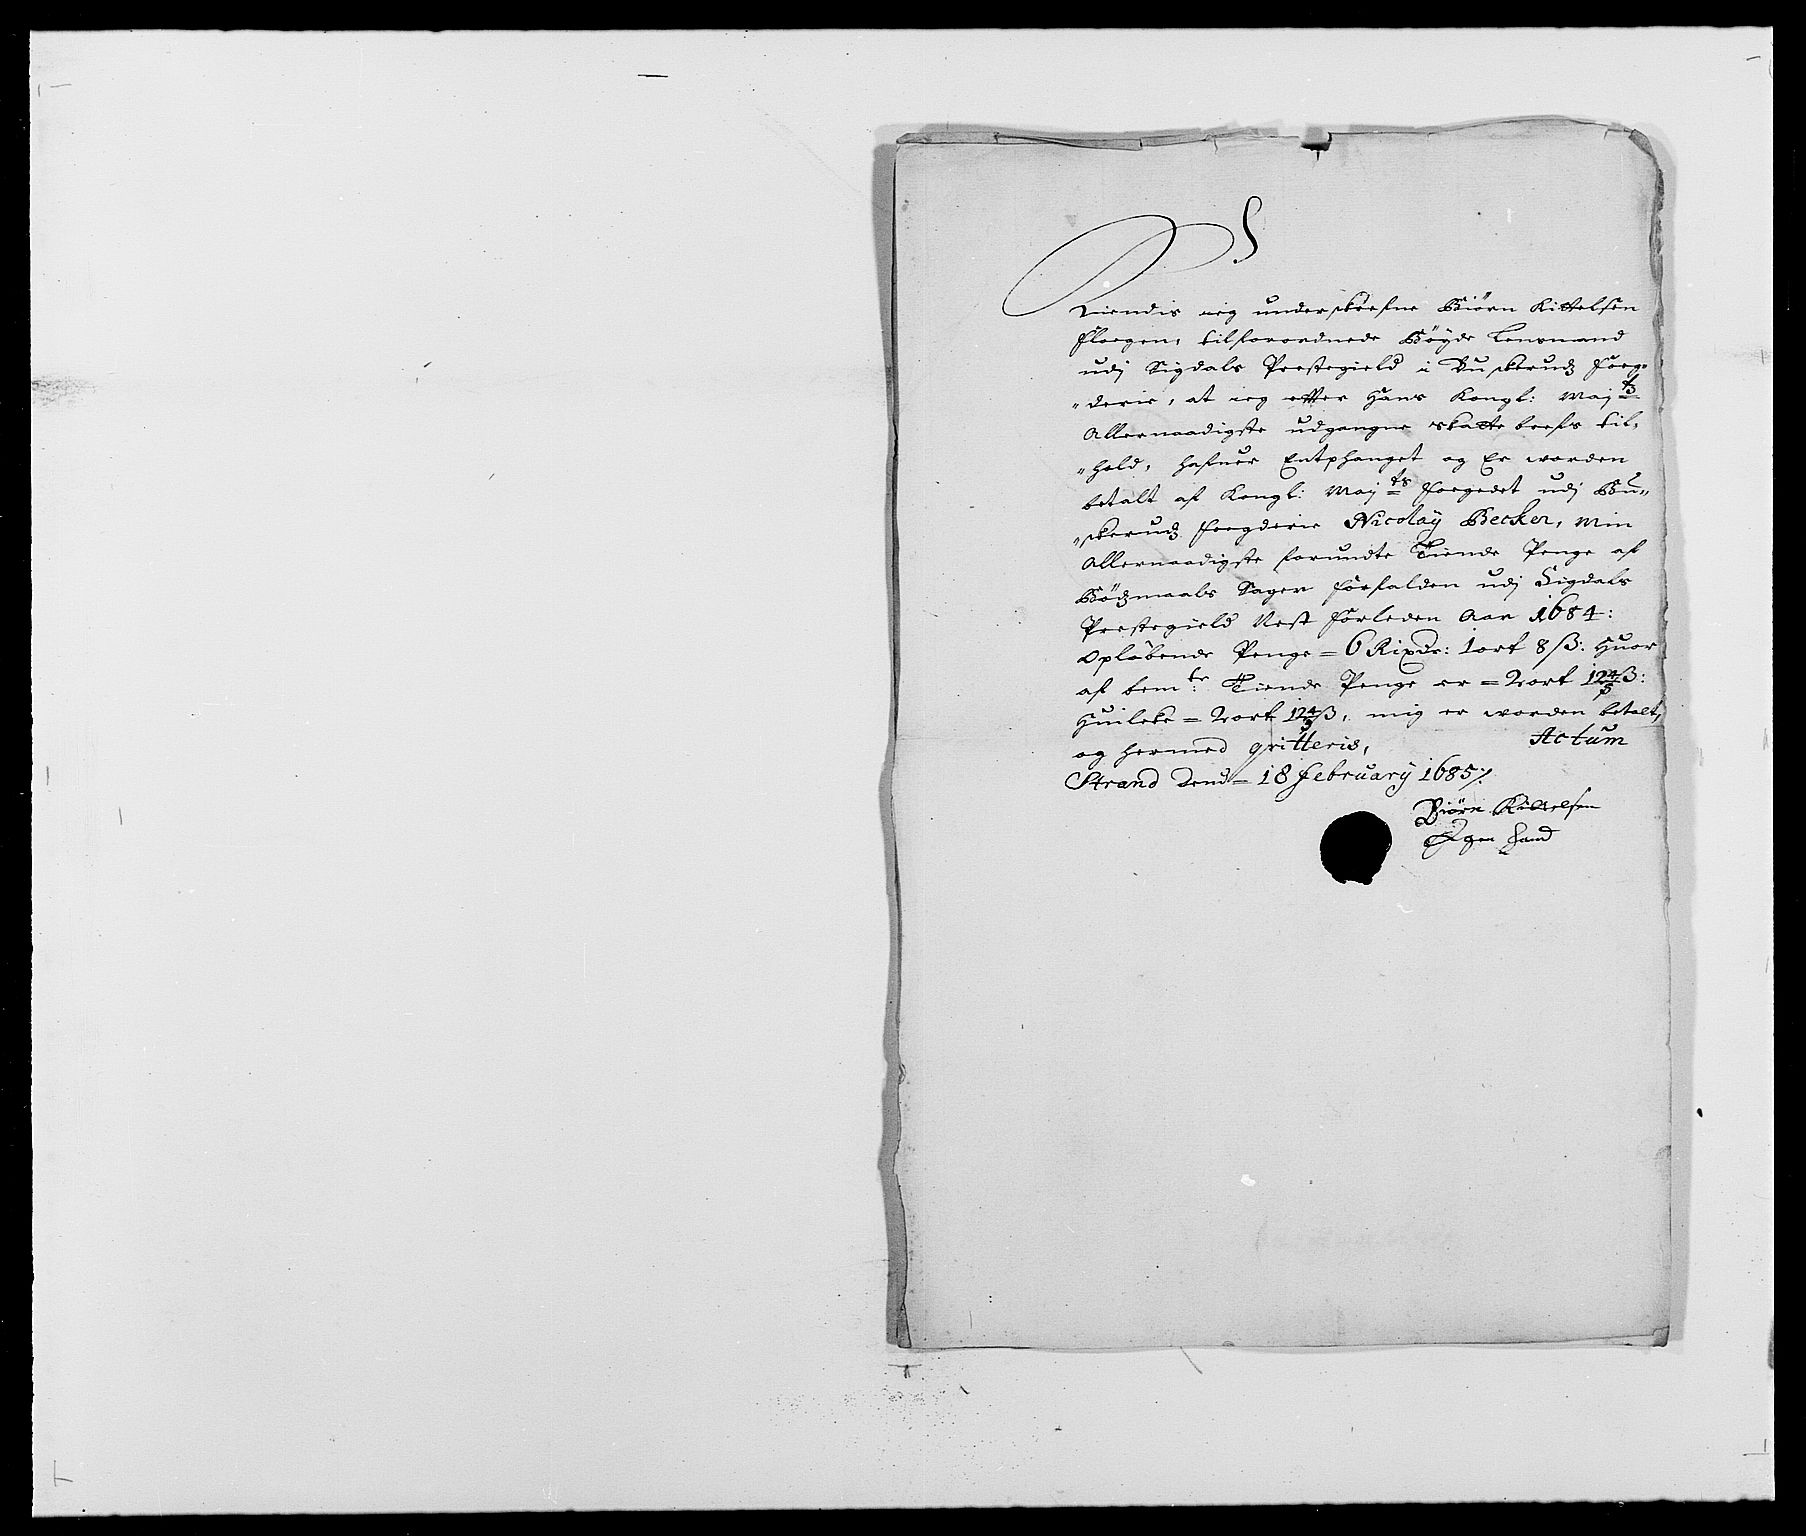 Kiendis ieg underskrefne Biörn Kittelsen
tilforordnede Böyde Lensmand
udj Sigdals Prestegield i Buskerudz foeg¬
"derie, at ieg effter Hans Kongl: Maj tz
Allernaadigste udgangne skatte brefs til,
"hold, hafuer Entphanget og Er worden
betalt af Kongl: Maj ts foegedet udj Bu"
"skerudz foegderie Nicolaÿ Becker, min
Allernaadigste forundte Tiende Penge af
Bödzmaals Sager forfalden udj Sigdals
Prestegield Nest forleden Aar 1684:
Opløbende Penge = 6 Rixdr: 1 ort 8 ß: Huor
af bem te: Tiende Penge er = 2 ort 12 4/5 ß:
Huilcke = 2 ort 12 4/5 ß, mig er worden betalt,
og hermed qvitteris, Actum
Strand Dend = 18 February 1685 ⁒
Biörn Kittelsen
Egen Hand